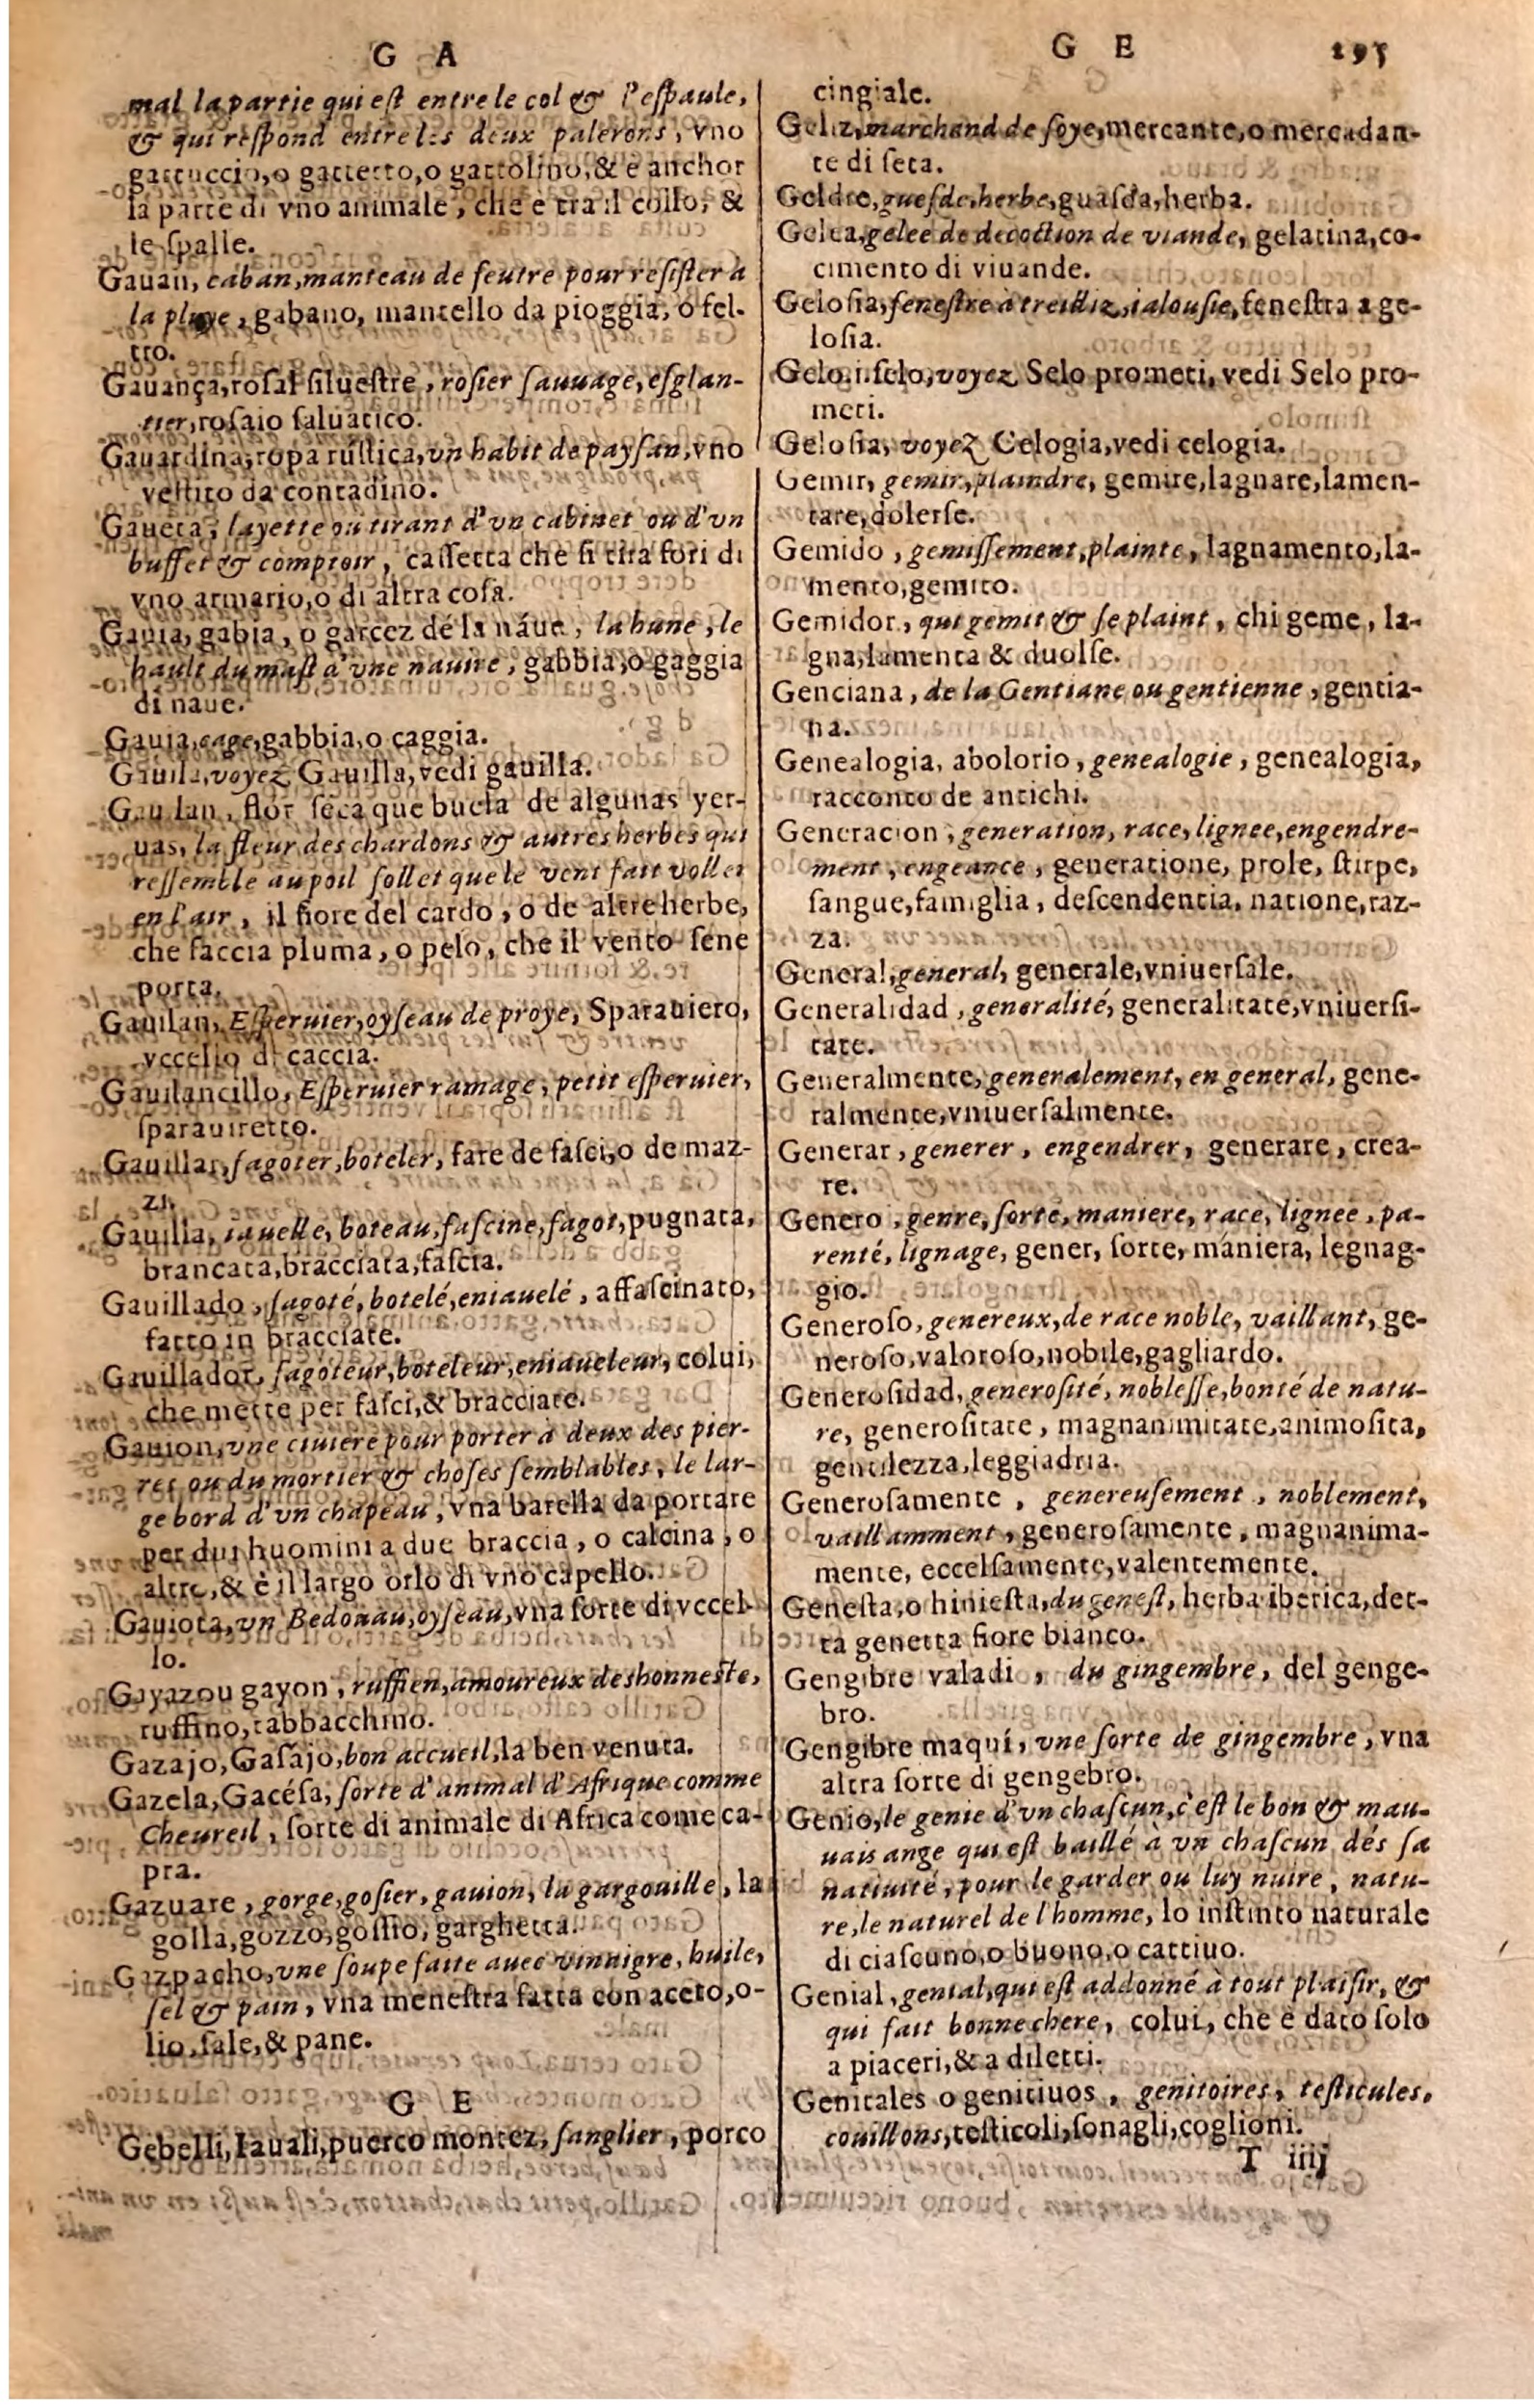 G A
mal la partie qui eſt entre le col & l'eſpaule,
& qui reſpond entre les deux palerons, vno
gattuccio, o gattetto, o gattolino, & e anchor
la parte di vno animale, che e tra il collo, &
le ſpalle.
Gauan, caban, manteau de feutre pour reſiſter a
la pluye, gabano, mantello da pioggia, o fel-
tro.
Gauança, roſal ſilueſtre, roſier ſauuage, eſglan-
tier, roſaio ſaluatico.
Gauardina, ropa rúſtica, vn habit de payſan, vno
veſtito da contadino.
Gaueta, layette ou tirant d'vn cabinet ou d'vn
buffet & comptoir, caſſetta che ſi tira fori di
vno armario, o di altra coſa.
Gauia, gabia, o garcez de la náue, la hune, le
hault du maſt d'vne nauire, gabbia, o gaggia
di naue.
Gauia, cage, gabbia, o caggia.
Gauila, voyez Gauilla, vedi gauilla.
Gauilan, flor ſeca que buela de algunas yer-
uas, la fleur des chardons & autres herbes qui
reſſemble au poil follet que le vent fait voller
en l'air, il fiore del cardo, o de altre herbe,
che faccia pluma, o pelo, che il vento ſene
porta.
Gauilan, Eſperuier, oyſeau de proye, Sparauiero,
vccello di caccia.
Gauilancillo, Eſperuier ramage, petit eſperuier,
ſparauiretto.
Gauillar, fagoter, boteler, fare de faſci, o de maz-
zi.
Gauilla, iauelle, boteau, faſcine, fagot, pugnata,
brancata, bracciata, faſcia.
Gauillado, fagoté, botelé, eniauelé, affaſcinato,
fatto in bracciate.
Gauillador, fagoteur, boteleur, eniaueleur, colui,
che mette per faſci, & bracciate.
Gauion, vne ciuiere pour porter à deux des pier-
res ou du mortier & choſes ſemblables, le lar-
ge bord d'vn chapeau, vna barella da portare
per dui huomini a due braccia, o calcina, o
altre, & è il largo orlo di vno capello.
Gauiota, vn Bedonau, oyſeau, vna ſorte di vccel-
lo.
Gayazou gayon, ruffien, amoureux deshonneſte,
ruffino, tabbacchino.
Gazajo, Gaſajo, bon accueil, la ben venuta.
Gazela, Gacéſa, ſorte d'animal d'Afrique comme
Cheureil, ſorte di animale di Africa come ca-
pra.
Gazuate, gorge, goſier, gauion, la gargouille, la
golla, gozzo, goſſio, garghetta.
Gazpacho, vne ſoupe faite auec vinaigre, huile,
ſel & pain, vna meneſtra fatta con aceto, o-
lio, ſale, & pane.
G E
Gebelli, Iauali, puerco montez, ſanglier, porco
G E 295
cingiale.
Geliz, marchand de ſoye, mercante, o mercadan-
te di ſeta.
Geldre, gueſde, herbe, guaſda, herba.
Gelea, gelee de decoction de viande, gelatina, co-
cimento di viuande.
Geloſia, feneſtre à treilliz, ialouſie, feneſtra a ge-
loſia.
Gelo. i. ſelo, voyez Selo prometi, vedi Selo pro-
meti.
Geloſia, voyez Celogia, vedi celogia.
Gemir, gemir, plaindre, gemire, lagnare, lamen-
tare, dolerſe.
Gemido, gemiſſement, plainte, lagnamento, la-
mento, gemito.
Gemidor, qui gemit & ſe plaint, chi geme, la-
gna, lamenta & duolſe.
Genciana, de la Gentiane ou gentienne, gentia-
na.
Genealogia, abolorio, genealogie, genealogia,
racconto de antichi.
Generacion, generation, race, lignee, engendre-
ment, engeance, generatione, prole, ſtirpe,
ſangue, famiglia, deſcendentia, natione, raz-
za.
General, general, generale, vniuerſale.
Generalidad, generalité, generalitate, vniuerſi-
tate.
Generalmente, generalement, en general, gene-
ralmente, vniuerſalmente.
Generar, generer, engendrer, generare, crea-
re.
Genero, genre, ſorte, maniere, race, lignee, pa-
renté, lignage, gener, ſorte, maniera, legnag-
gio.
Generoſo, genereux, de race noble, vaillant, ge-
neroſo, valoroſo, nobile, gagliardo.
Generoſidad, generoſité, nobleſſe, bonté de natu-
re, generoſitate, magnanimitate, animoſita,
gentilezza, leggiadria.
Generoſamente, genereuſement, noblement,
vaillamment, generoſamente, magnanima-
mente, eccelſamente, valentemente.
Geneſta, o hinieſta, du geneſt, herba iberica, det-
ta genetta fiore bianco.
Gengibre valadi, du gingembre, del genge-
bro.
Gengibre maquí, vne ſorte de gingembre, vna
altra ſorte di gengebro.
Genio, le genie d'vn chaſcun, c'eſt le bon & mau-
uais ange qui eſt baillé à vn chaſcun dés ſa
natiuité, pour le garder ou luy nuire, natu-
re, le naturel de l'homme, lo inſtinto naturale
di ciaſcuno, o buono, o cattiuo.
Genial, genial, qui eſt addonné à tout plaiſir, &
qui fait bonne chere, colui, che e dato ſolo
a piaceri, & a diletti.
Genitales o genitiuos, genitoires, teſticules,
couillons, teſticoli, ſonagli, coglioni.
T iiij